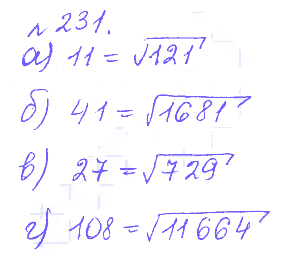 № 231.
а) 11 = √121
б) 41 = √1681
в) 27 = √729
г) 108 = √11664